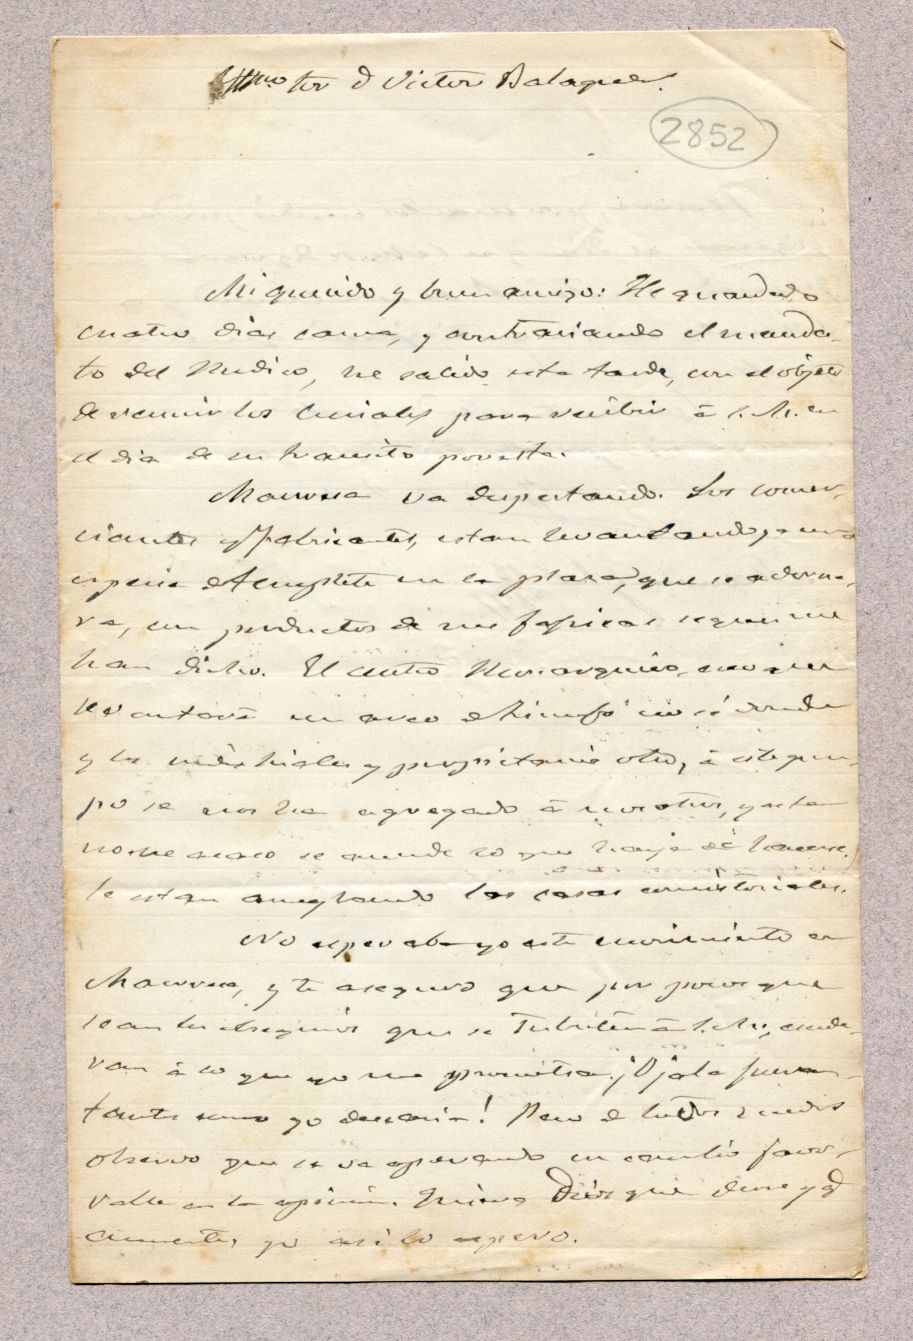 Exmo Sor D Victor Balaguer.
2852
Mi querido y buen amigo: He guardado
cuatro dias cama, y contrariando el manda-
to del Medico, he salido esta tarde, con el objeto
de reunir los para recibir á S. M. en
el dia de su transito por esta.
Manresa va despertando. Los comer-
ciantes y fabricantes, estan levantando ya una
especie de templete en la plaza, que se adorna-
ra, con productos de sus fabricas segun me
han dicho. El centro Monarquico, creo que
levantará un arco de triunfo no sé donde
y los industriales y propietarios otro, á este gru-
po se nos ha agregado á nosotros, y esta
noche acaso se acuerde lo que haya de hacerse.
Se estan arreglando las casas consistoriales.
No esperaba yo este movimiento en
Manresa, y te aseguro que por pocos que
sean los obsequios que se tributen á S. M., escede-
ran á lo que yo me prometia. ¡Ojala fueran
tantos como yo desearia! Pero de todos modos
observo que se va operando un cambio favo-
rable en la opinion. Quiera Dios que dure y q
aumente, yo asi lo espero.